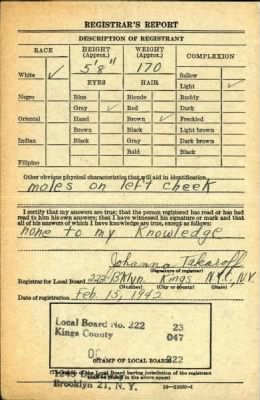 REGISTRAR'S REPORT
DESCRIPTION OF REGISTRANT
RACE
HEIGHT (Approx.)
WEIGHT (Approx.)
COMPLEXION
5'8" 170
White ✓
Sallow
EYES HAIR
Light ✓
Negro Blue Blonde Ruddy
Gray ✓ Red Dark
Oriental Hazel Brown ✓ Freckled
Brown Black Light brown
Indian Black Gray Dark brown
Bald Black
Filipino
Other obvious physical characteristics that will aid in identification
moles on left cheek
I certify that my answers are true; that the person registered has read or has had
read to him his own answers; that I have witnessed his signature or mark and that
all of his answers of which I have knowledge are true, except as follows:
none to my knowledge
Johanna
(Signature of registrar)
Registrar for Local Board 222 Bklyn Kings N.Y.C., N.Y.
(Number) (City or county) (State)
Date of registration Feb 15, 1942
Local Board No. 222 23
Kings County 047
(STAMP OF LOCAL BOARD)
(The stamp of the Local Board having jurisdiction of the registrant
shall be placed in the above space)
Brooklyn 21, N. Y.